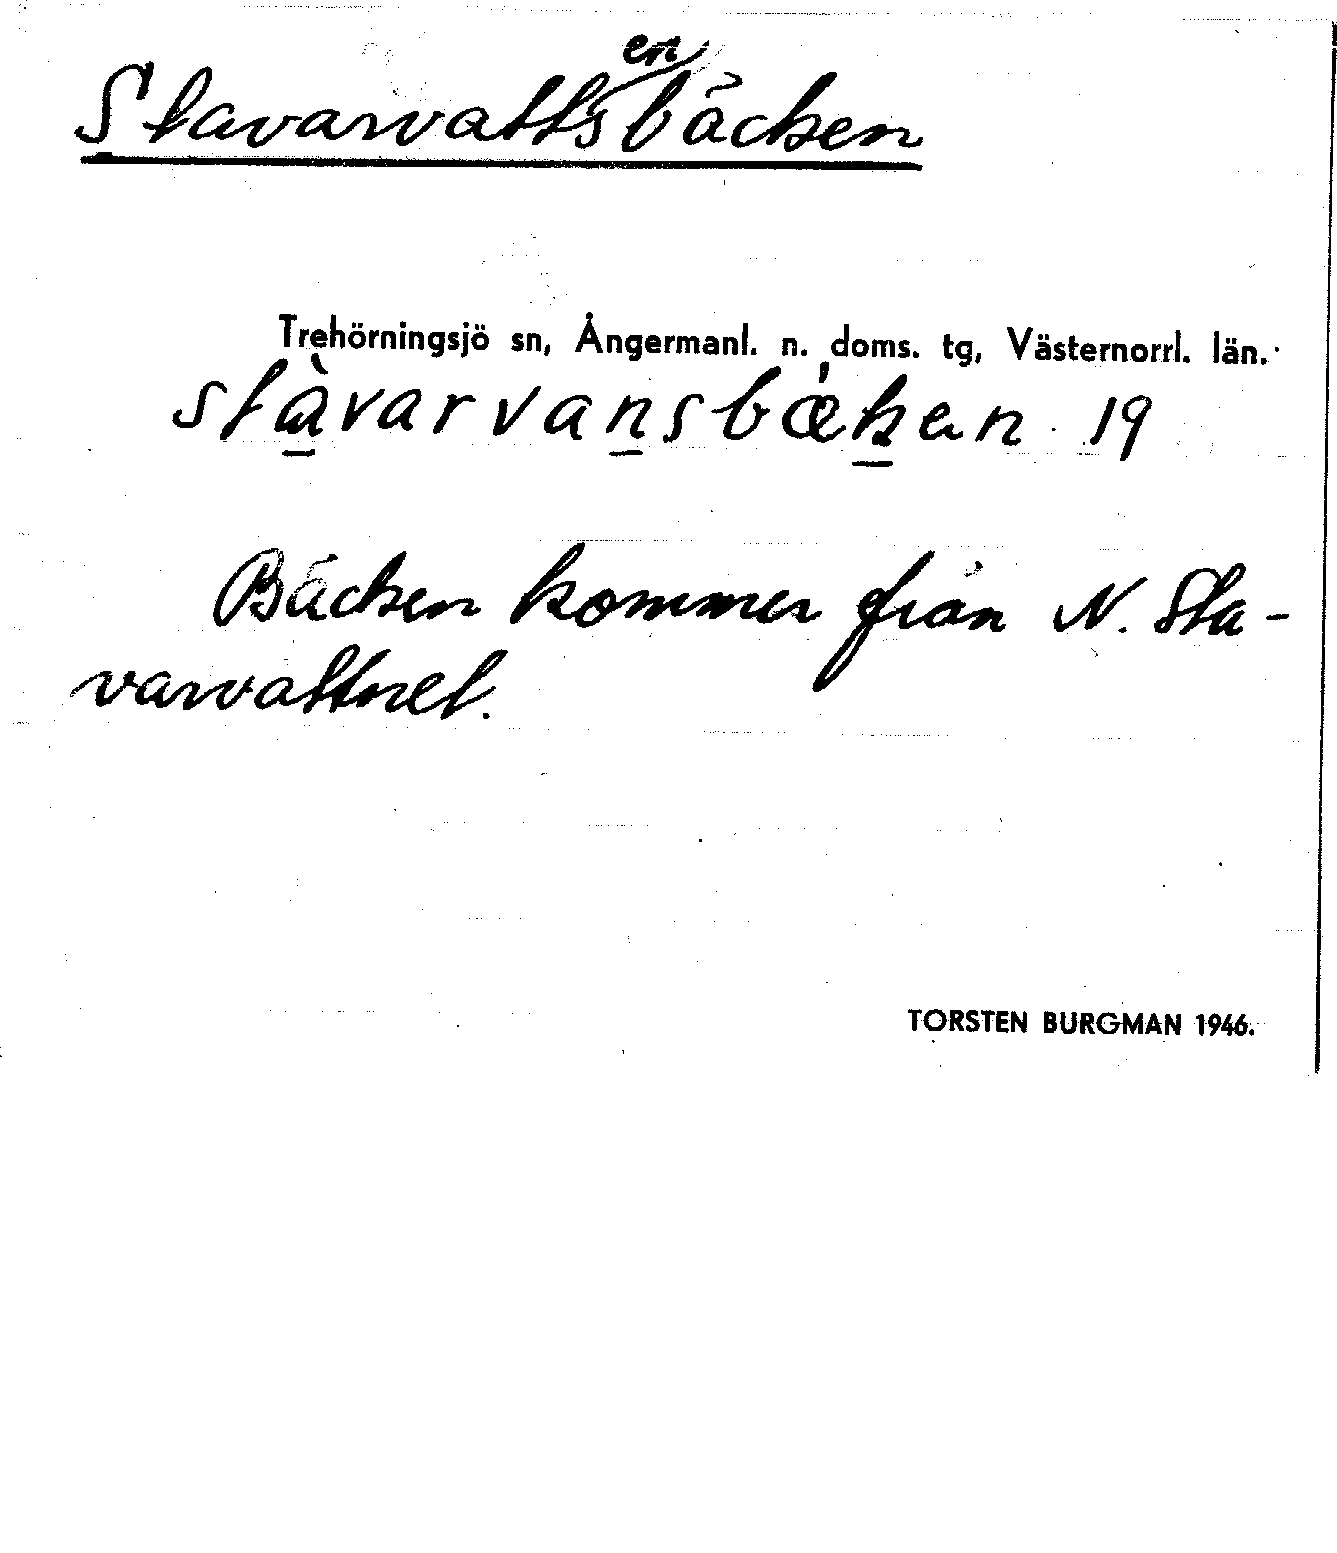 Stavarvattensbäcken
Trehörningsjö sn, Ångermanl. n. doms. tg, Västernorrl. län.
stàvarvansbæ̀ken 19
Bäcken kommer från N. Sta-
varvattnet.
TORSTEN BURGMAN 1946.